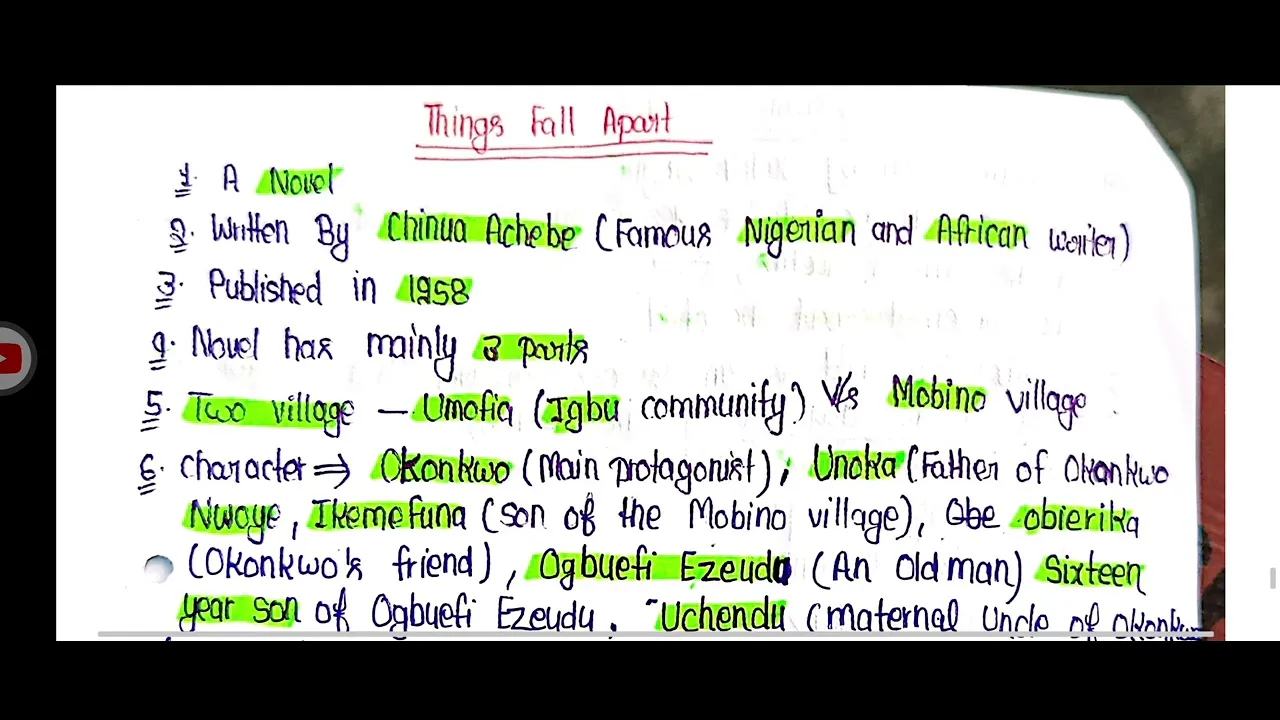 Things Fall Apart
1. A Novel
2. Written By Chinua Achebe (Famous Nigerian and African writer)
3. Published in 1958
4. Novel has mainly 3 parts
5. Two village – Umofia (Igbu community) V/s Mobino village
6. Character ⇒ Okonkwo (Main protagonist); Unoka (Father of Okonkwo
Nwoye, Ikemefuna (son of the Mobino village), Obierika
(Okonkwo's friend), Ogbuefi Ezeudu (An Old man) Sixteen
year son of Ogbuefi Ezeudu. Uchendu (maternal Uncle of Okonkwo